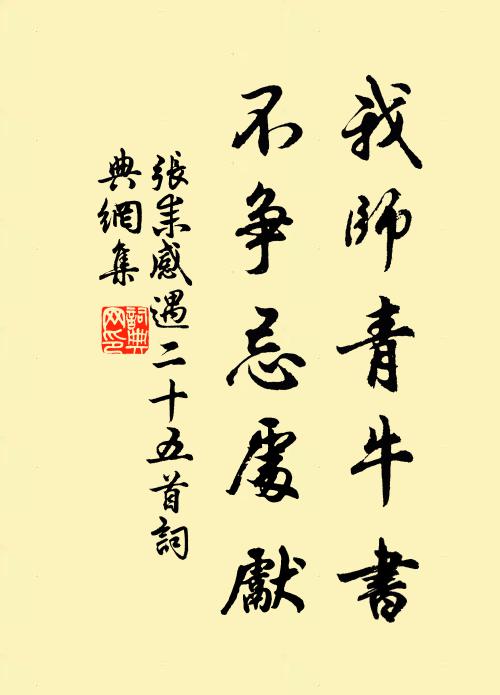 我師青牛書
不争忌處獻
張耒感遇二十五首詞
典網集
詞典网印